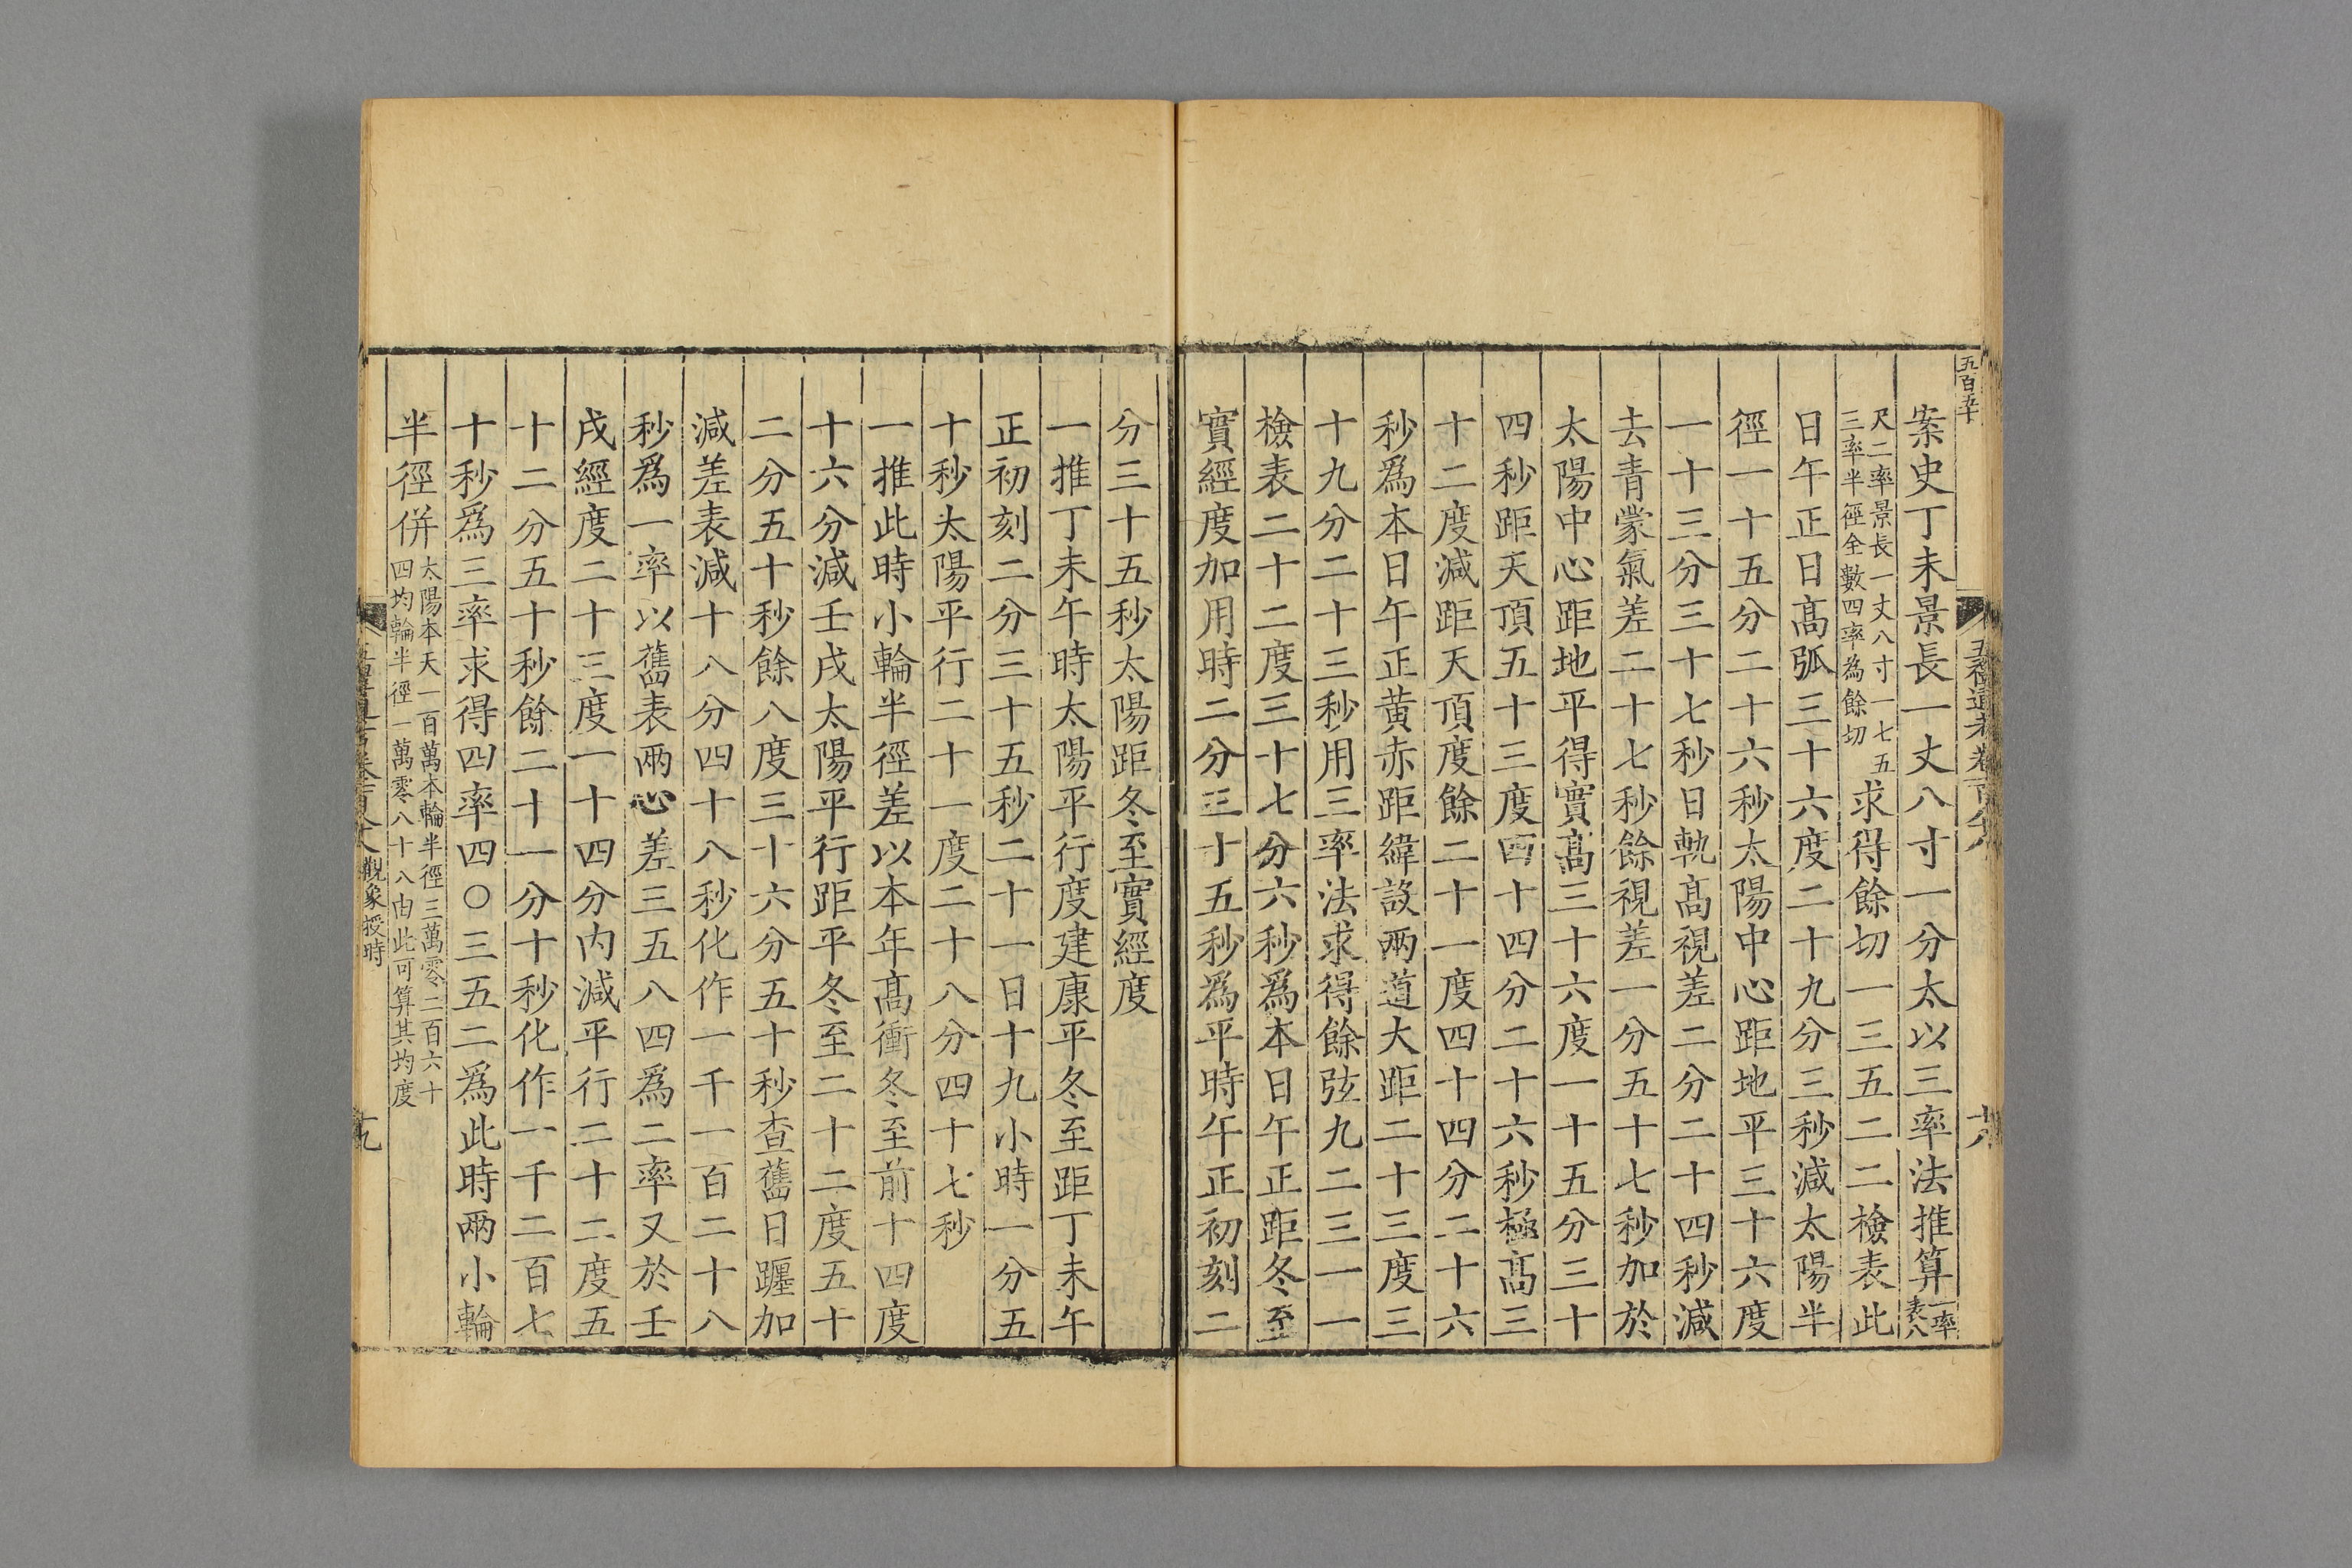 五百五十
五禮通考卷一百八十八
十八
案史丁未景長一丈八寸一分太以三率法推算一率表八
尺二率景長一丈八寸一七五
三率半徑全數四率為餘切
求得餘切一三五二二檢表此
日午正日高弧三十六度二十九分三秒減太陽半
徑一十五分二十六秒太陽中心距地平三十六度
一十三分三十七秒日軌高視差二分二十四秒減
去青蒙氣差二十七秒餘視差一分五十七秒加於
太陽中心距地平得實高三十六度一十五分三十
四秒距天頂五十三度四十四分二十六秒極高三
十二度減距天頂度餘二十一度四十四分二十六
秒爲本日午正黃赤距緯設兩道大距二十三度三
十九分二十三秒用三率法求得餘弦九二三一一
檢表二十二度三十七分六秒爲本日午正距冬至
實經度加用時二分三十五秒爲平時午正初刻二
分三十五秒太陽距冬至實經度
一推丁未午時太陽平行度建康平冬至距丁未午
正初刻二分三十五秒二十一日十九小時一分五
十秒太陽平行二十一度二十八分四十七秒
一推此時小輪半徑差以本年高衝冬至前十四度
十六分減壬戌太陽平行距平冬至二十二度五十
二分五十秒餘八度三十六分五十秒查舊日躔加
減差表減十八分四十八秒化作一千一百二十八
秒爲一率以舊表兩心差三五八四爲二率又於壬
戌經度二十三度一十四分內減平行二十二度五
十二分五十秒餘二十一分十秒化作一千二百七
十秒爲三率求得四率四〇三五二爲此時兩小輪
半徑併
太陽本天一百萬本輪半徑三萬零二百六十
四均輪半徑一萬零八十八由此可算其均度
觀象授時
十九